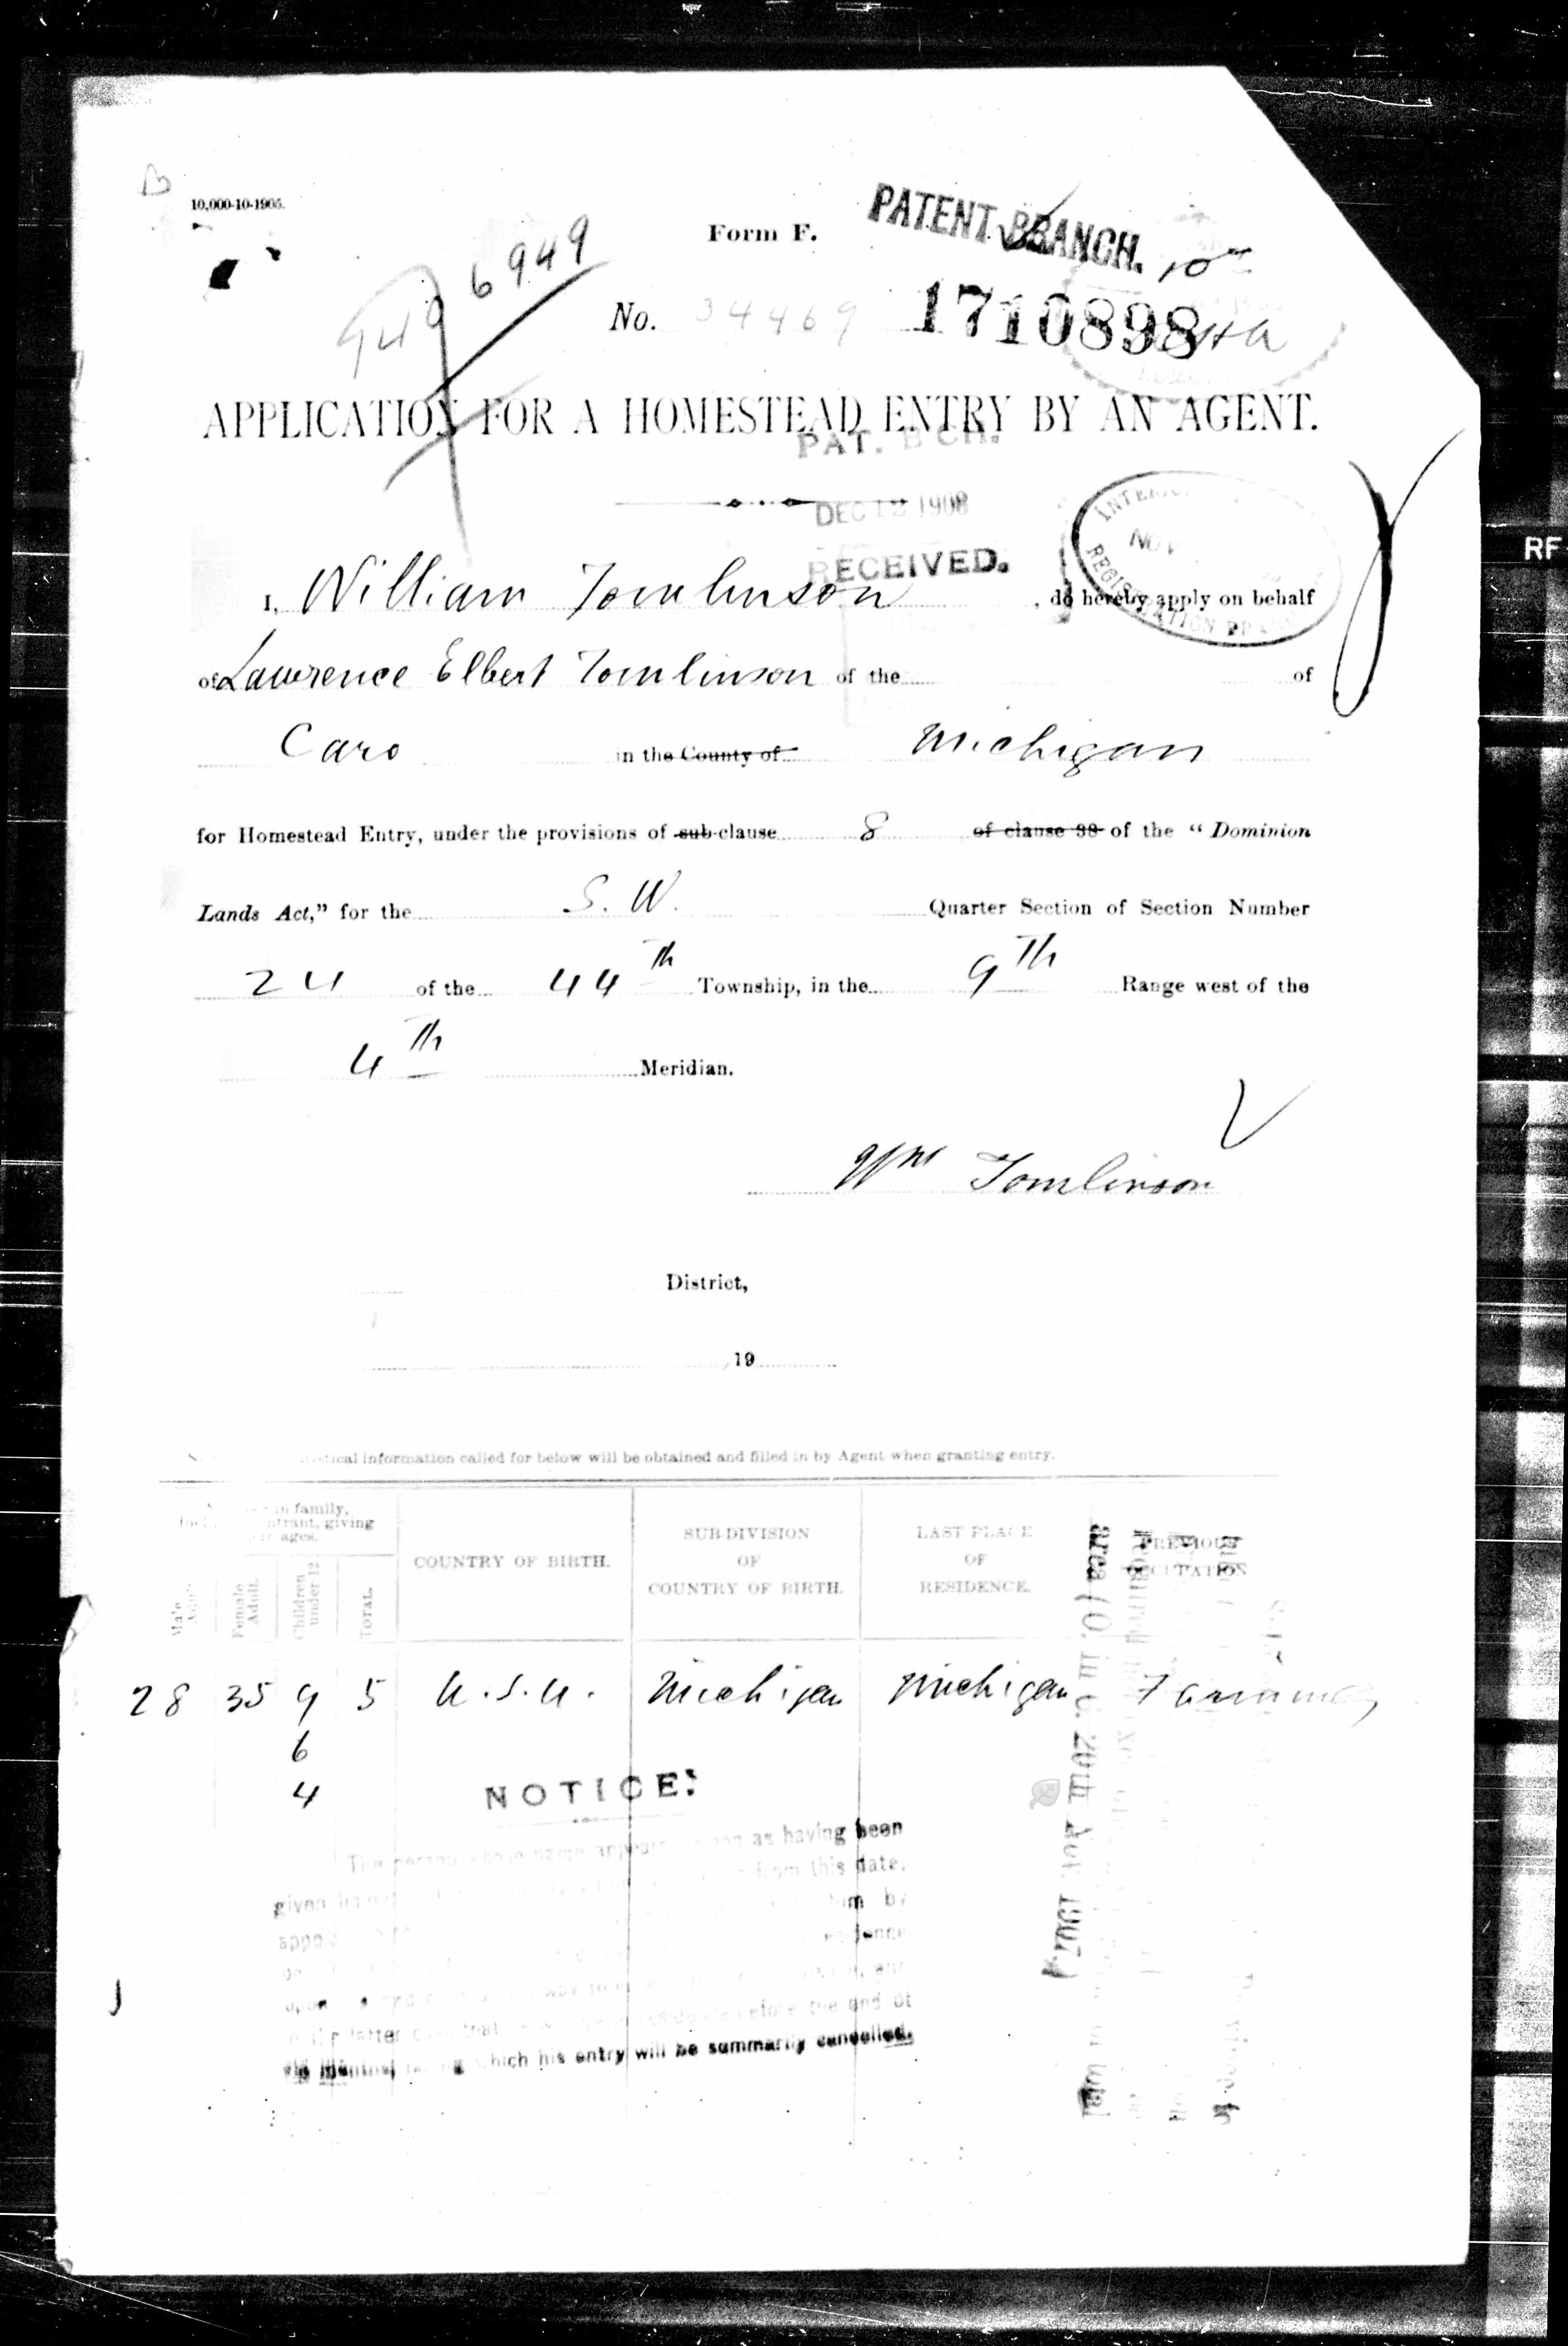 B
10,000-10-1905.
Form F.
PATENT BRANCH.
949 6949
No. 34469 1710898
APPLICATION FOR A HOMESTEAD ENTRY BY AN AGENT.
PAT. B'CH.
DEC 12 1908
RECEIVED.
REGISTRATION
I, William Tomlinson, do hereby apply on behalf
of Lawrence Elbert Tomlinson of the of
Caro in the County of Michigan
for Homestead Entry, under the provisions of sub-clause 8 of clause 38 of the “ Dominion
Lands Act,” for the S. W. Quarter Section of Section Number
24 of the 44th Township, in the 9th Range west of the
4th Meridian.
Wm Tomlinson
District,
19
information called for below will be obtained and filled in by Agent when granting entry.
in family,
giving
ages.
Male Adult
Female Adult.
Children under 12
TOTAL.
COUNTRY OF BIRTH.
SUB-DIVISION OF COUNTRY OF BIRTH.
LAST PLACE OF RESIDENCE.
PREVIOUS OCCUPATION
28 35 9 5 U.S.A. Michigan Michigan Farming
6
4
NOTICE:
The person whose name appears as having been
given from this date,
him by
upon
latter before the end of
which his entry will be summarily cancelled.
area (O. in C. 20th 1907)
RF